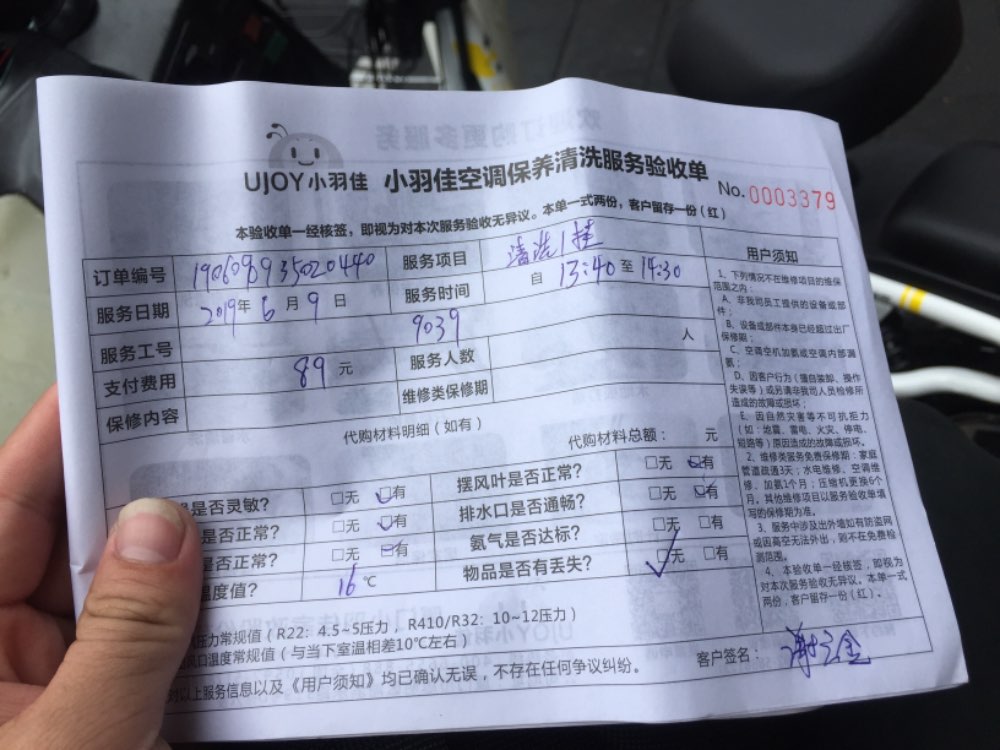 UJOY小羽佳 小羽佳空调保养清洗服务验收单
No.0003379
本验收单一经核签，即视为对本次服务验收无异议。本单一式两份，客户留存一份（红）
订单编号 190609935020440 服务项目 清洗1挂
服务日期 2019年6月9日 服务时间 自13:40至14:30
服务工号 9039 服务人数 人
支付费用 89元 维修类保修期
保修内容
代购材料明细（如有） 代购材料总额： 元
是否灵敏？ □无 □有 摆风叶是否正常？ □无 □有
是否正常？ □无 □有 排水口是否通畅？ □无 □有
是否正常？ □无 □有 氨气是否达标？ □无 □有
温度值？ 16℃ 物品是否有丢失？ □无 □有
压力常规值（R22：4.5~5压力，R410/R32：10~12压力）
风口温度常规值（与当下室温相差10℃左右）
对以上服务信息以及《用户须知》均已确认无误，不存在任何争议纠纷。
客户签名：
用户须知
1、下列情况不在维修项目的维保
范围之内：
A、非我司员工提供的设备或部
件；
B、设备或部件本身已经超过出厂
保修期；
C、空调空机加氨或空调内部漏
氨；
D、因客户行为（擅自装卸、操作
失误等）或另请非我司人员检修所
造成的故障或损坏；
E、因自然灾害等不可抗拒力
（如：地震、雷电、火灾、停电、
短路等）原因造成的故障或损坏。
2、维修类服务免费保修期：家庭
管道疏通3天；水电维修、空调维
修、加氨1个月；压缩机更换6个
月。其他维修项目以服务验收单填
写的保修期为准。
3、服务中涉及出外墙如有防盗网
或因高空无法外出，则不在免费检
测范围。
4、本验收单一经核签，即视为
对本次服务验收无异议。本单一式
两份，客户留存一份（红）。